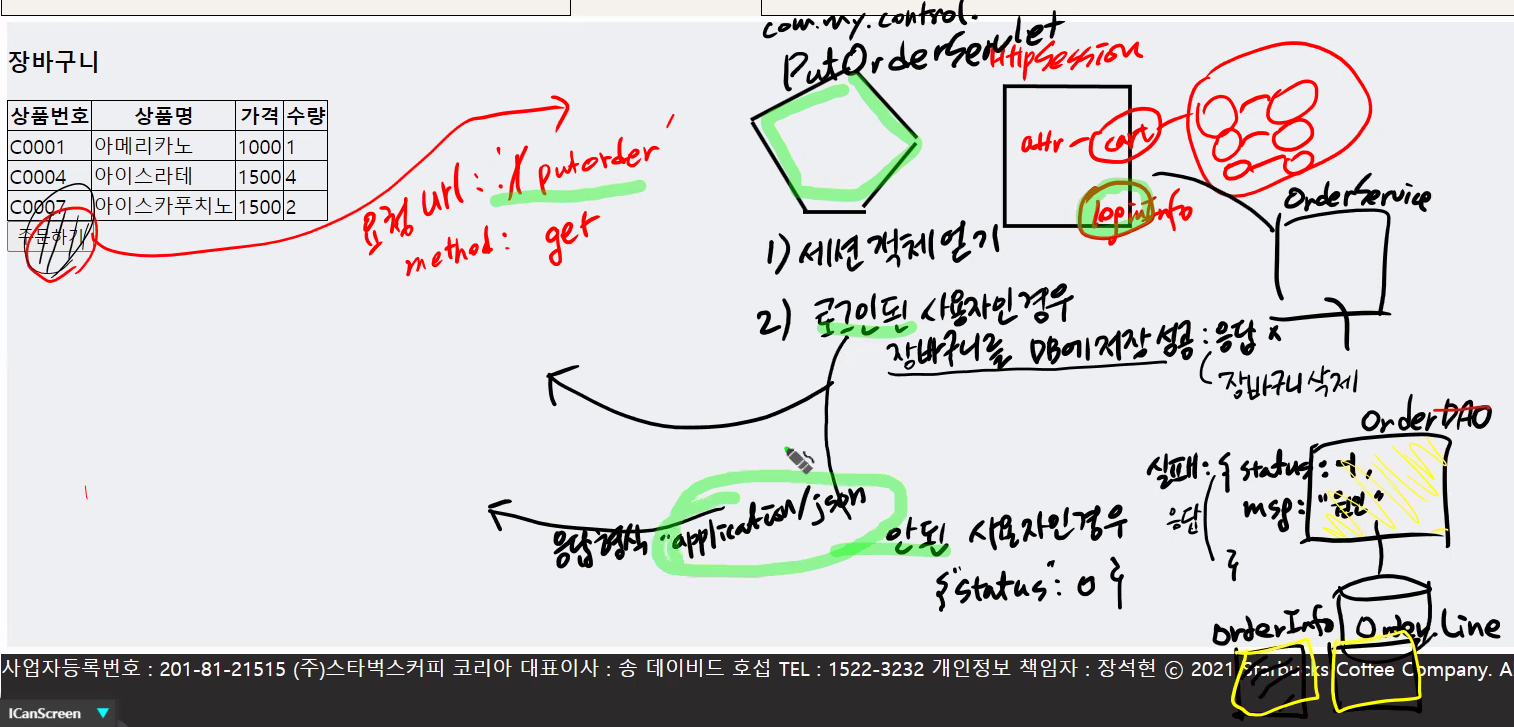 장바구니
상품번호 상품명 가격 수량
C0001 아메리카노 1000 1
C0004 아이스라떼 1500 4
C0007 아이스카푸치노 1500 2
주문하기
요청 url : './putorder'
method : get
com.my.control.
PutOrderServlet
HttpSession
attr - cart
loginInfo
OrderService
1) 세션객체얻기
2) 로그인된 사용자인경우
장바구니를 DB에저장 성공 : 응답 x
장바구니삭제
OrderDAO
실패 : { status : -1,
응답
msg :
}
응답형식 "application/json
안된 사용자인경우
{"status" : 0 }
OrderInfo OrderLine
사업자등록번호 : 201-81-21515 (주)스타벅스커피 코리아 대표이사 : 송 데이비드 호섭 TEL : 1522-3232 개인정보 책임자 : 장석현 ⓒ 2021 Starbucks Coffee Company. A
ICanScreen